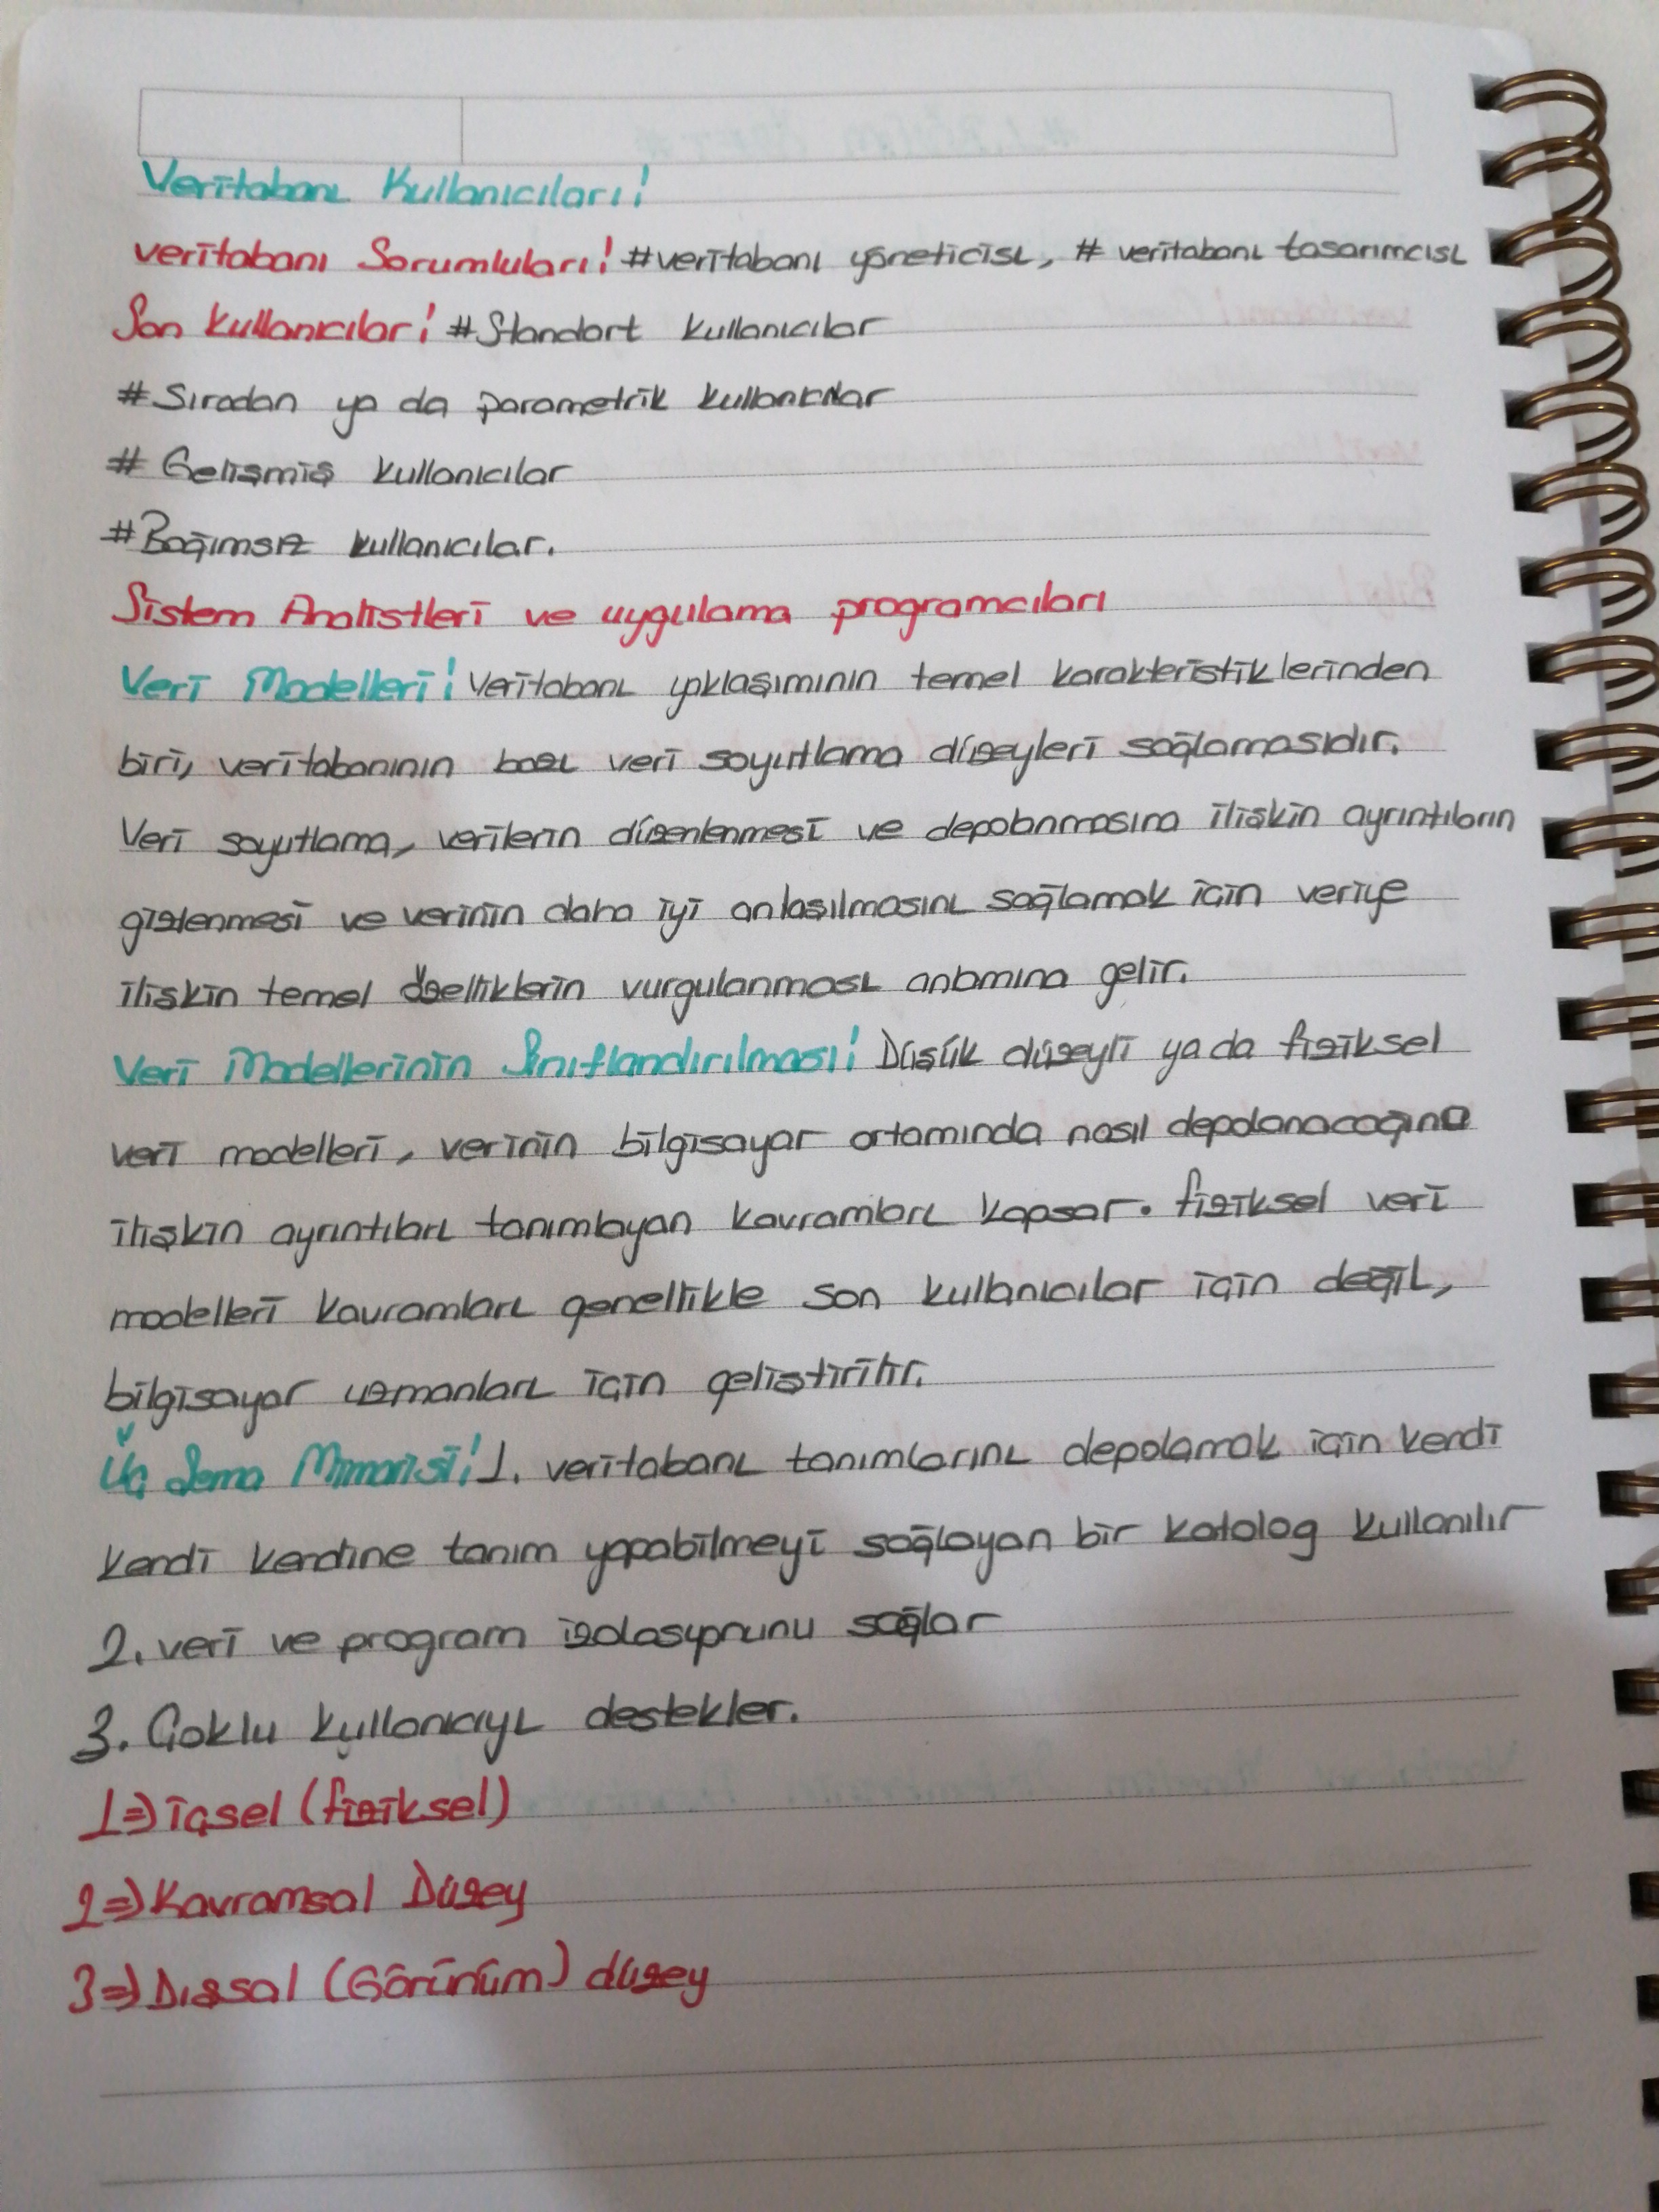 Veritabanı Kullanıcıları!
veritabanı Sorumluları! #veritabanı yöneticisi, # veritabanı tasarımcısı
Son kullanıcılar! #Standart kullanıcılar
#Sıradan ya da parametrik kullanıcılar
# Gelişmiş kullanıcılar
#Bağımsız kullanıcılar.
Sistem Analistleri ve uygulama programcıları
Veri Modelleri! Veritabanı yaklaşımının temel karakteristiklerinden
biri, veritabanının bazı veri soyutlama düzeyleri sağlamasıdır.
Veri soyutlama, verilerin düzenlenmesi ve depolanmasına ilişkin ayrıntıların
gizlenmesi ve verinin daha iyi anlaşılmasını sağlamak için veriye
ilişkin temel özelliklerin vurgulanması anlamına gelir.
Veri Modellerinin Sınıflandırılması! Düşük düzeyli ya da fiziksel
veri modelleri, verinin bilgisayar ortamında nasıl depolanacağına
ilişkin ayrıntıları tanımlayan kavramları kapsar. fiziksel veri
modelleri kavramları genellikle son kullanıcılar için değil,
bilgisayar uzmanları için geliştirilir.
Üç Şema Mimarisi! 1. veritabanı tanımlarını depolamak için kendi
kendi kendine tanım yapabilmeyi sağlayan bir katolog kullanılır
2. veri ve program izolasyonunu sağlar
3. Çoklu kullanıcıyı destekler.
1⇒ içsel (fiziksel)
2⇒ Kavramsal Düzey
3⇒ Dışsal (Görünüm) düzey